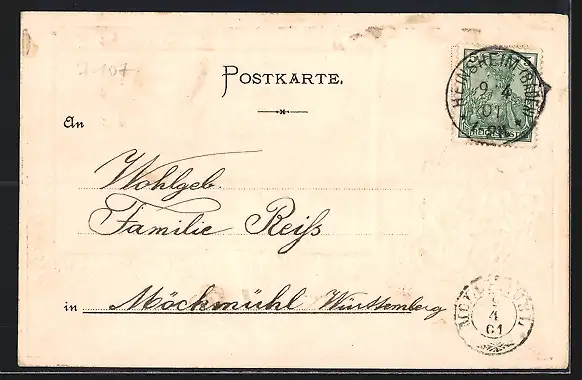 J-107
POSTKARTE.
HEINSHEIM (BADEN)
9 4
01
REICHSPOST
An
Wohlgeb
Familie Reiß
in Möckmühl Württemberg
9
4
01